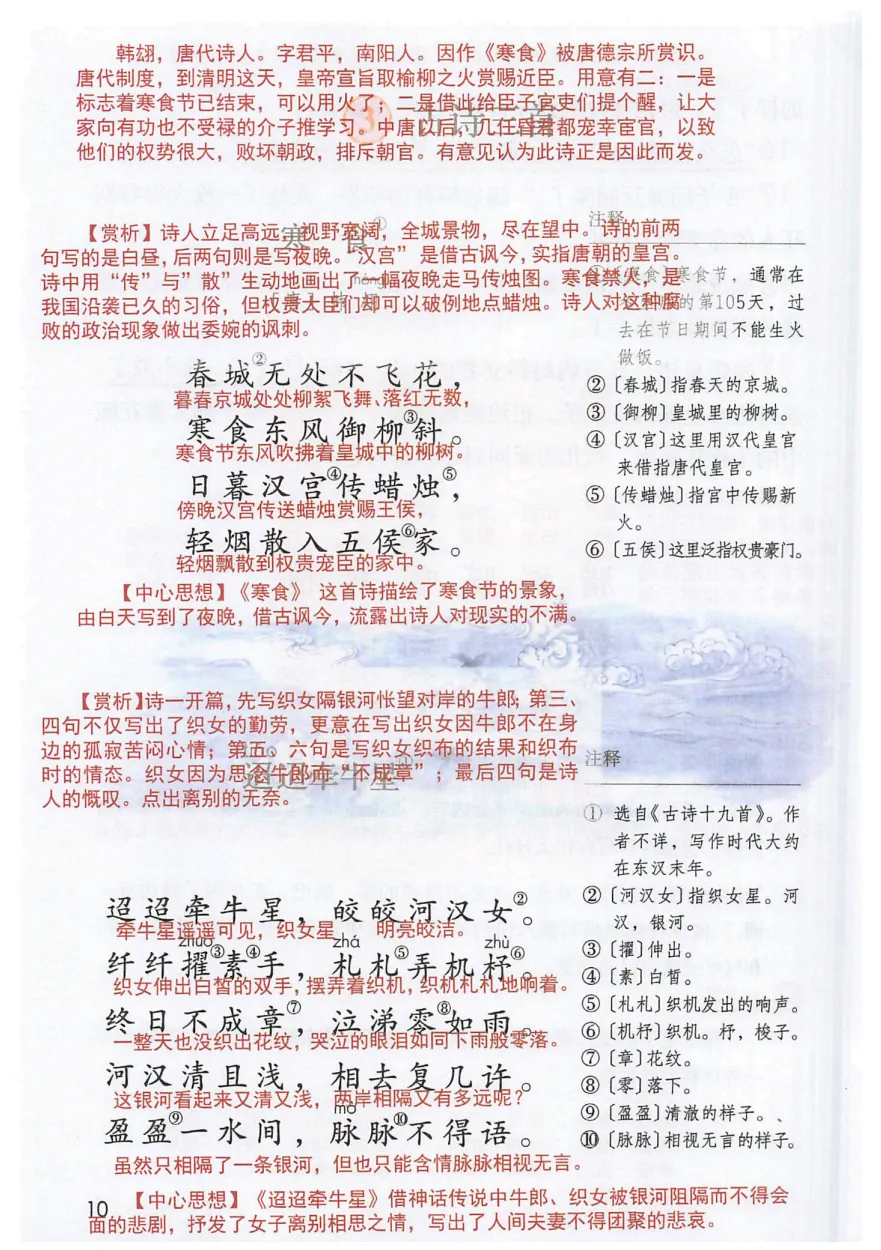 韩翃，唐代诗人。字君平，南阳人。因作《寒食》被唐德宗所赏识。
唐代制度，到清明这天，皇帝宣旨取榆柳之火赏赐近臣。用意有二：一是
标志着寒食节已结束，可以用火了；二是借此给臣子官吏们提个醒，让大
家向有功也不受禄的介子推学习。中唐以后，几任昏君都宠幸宦官，以致
他们的权势很大，败坏朝政，排斥朝官。有意见认为此诗正是因此而发。
3 古诗二首
【赏析】诗人立足高远，视野宽阔，全城景物，尽在望中。诗的前两
句写的是白昼，后两句则是写夜晚。“汉宫”是借古讽今，实指唐朝的皇宫。
诗中用“传”与”散”生动地画出了一幅夜晚走马传烛图。寒食禁火，是
我国沿袭已久的习俗，但权贵大臣们却可以破例地点蜡烛。诗人对这种腐
败的政治现象做出委婉的讽刺。
寒食①
hóng
春城②无处不飞花，
暮春京城处处柳絮飞舞、落红无数，
寒食东风御柳③斜。
寒食节东风吹拂着皇城中的柳树。
日暮汉宫④传蜡烛⑤，
傍晚汉宫传送蜡烛赏赐王侯，
轻烟散入五侯⑥家。
轻烟飘散到权贵宠臣的家中。
【中心思想】《寒食》 这首诗描绘了寒食节的景象，
由白天写到了夜晚，借古讽今，流露出诗人对现实的不满。
注释
①〔寒食〕寒食节，通常在
的第105天，过
去在节日期间不能生火
做饭。
②〔春城〕指春天的京城。
③〔御柳〕皇城里的柳树。
④〔汉宫〕这里用汉代皇宫
来借指唐代皇宫。
⑤〔传蜡烛〕指宫中传赐新
火。
⑥〔五侯〕这里泛指权贵豪门。
【赏析】诗一开篇，先写织女隔银河怅望对岸的牛郎；第三、
四句不仅写出了织女的勤劳，更意在写出织女因牛郎不在身
边的孤寂苦闷心情；第五。六句是写织女织布的结果和织布
时的情态。织女因为思念牛郎而“不成章”；最后四句是诗
人的慨叹。点出离别的无奈。
迢迢牵牛星①
迢迢牵牛星，皎皎河汉女②。
牵牛星遥遥可见，织女星 明亮皎洁。
zhuó zhá zhù
纤纤擢③素④手，札札⑤弄机杼⑥。
织女伸出白皙的双手，摆弄着织机，织机札札地响着。
终日不成章⑦，泣涕零⑧如雨。
一整天也没织出花纹，哭泣的眼泪如同下雨般零落。
河汉清且浅，相去复几许。
这银河看起来又清又浅，两岸相隔又有多远呢？
mò
盈盈⑨一水间，脉脉⑩不得语。
虽然只相隔了一条银河，但也只能含情脉脉相视无言。
注释
① 选自《古诗十九首》。作
者不详，写作时代大约
在东汉末年。
②〔河汉女〕指织女星。河
汉，银河。
③〔擢〕伸出。
④〔素〕白皙。
⑤〔札札〕织机发出的响声。
⑥〔机杼〕织机。杼，梭子。
⑦〔章〕花纹。
⑧〔零〕落下。
⑨〔盈盈〕清澈的样子。
⑩〔脉脉〕相视无言的样子。
【中心思想】《迢迢牵牛星》借神话传说中牛郎、织女被银河阻隔而不得会
面的悲剧，抒发了女子离别相思之情，写出了人间夫妻不得团聚的悲哀。
10